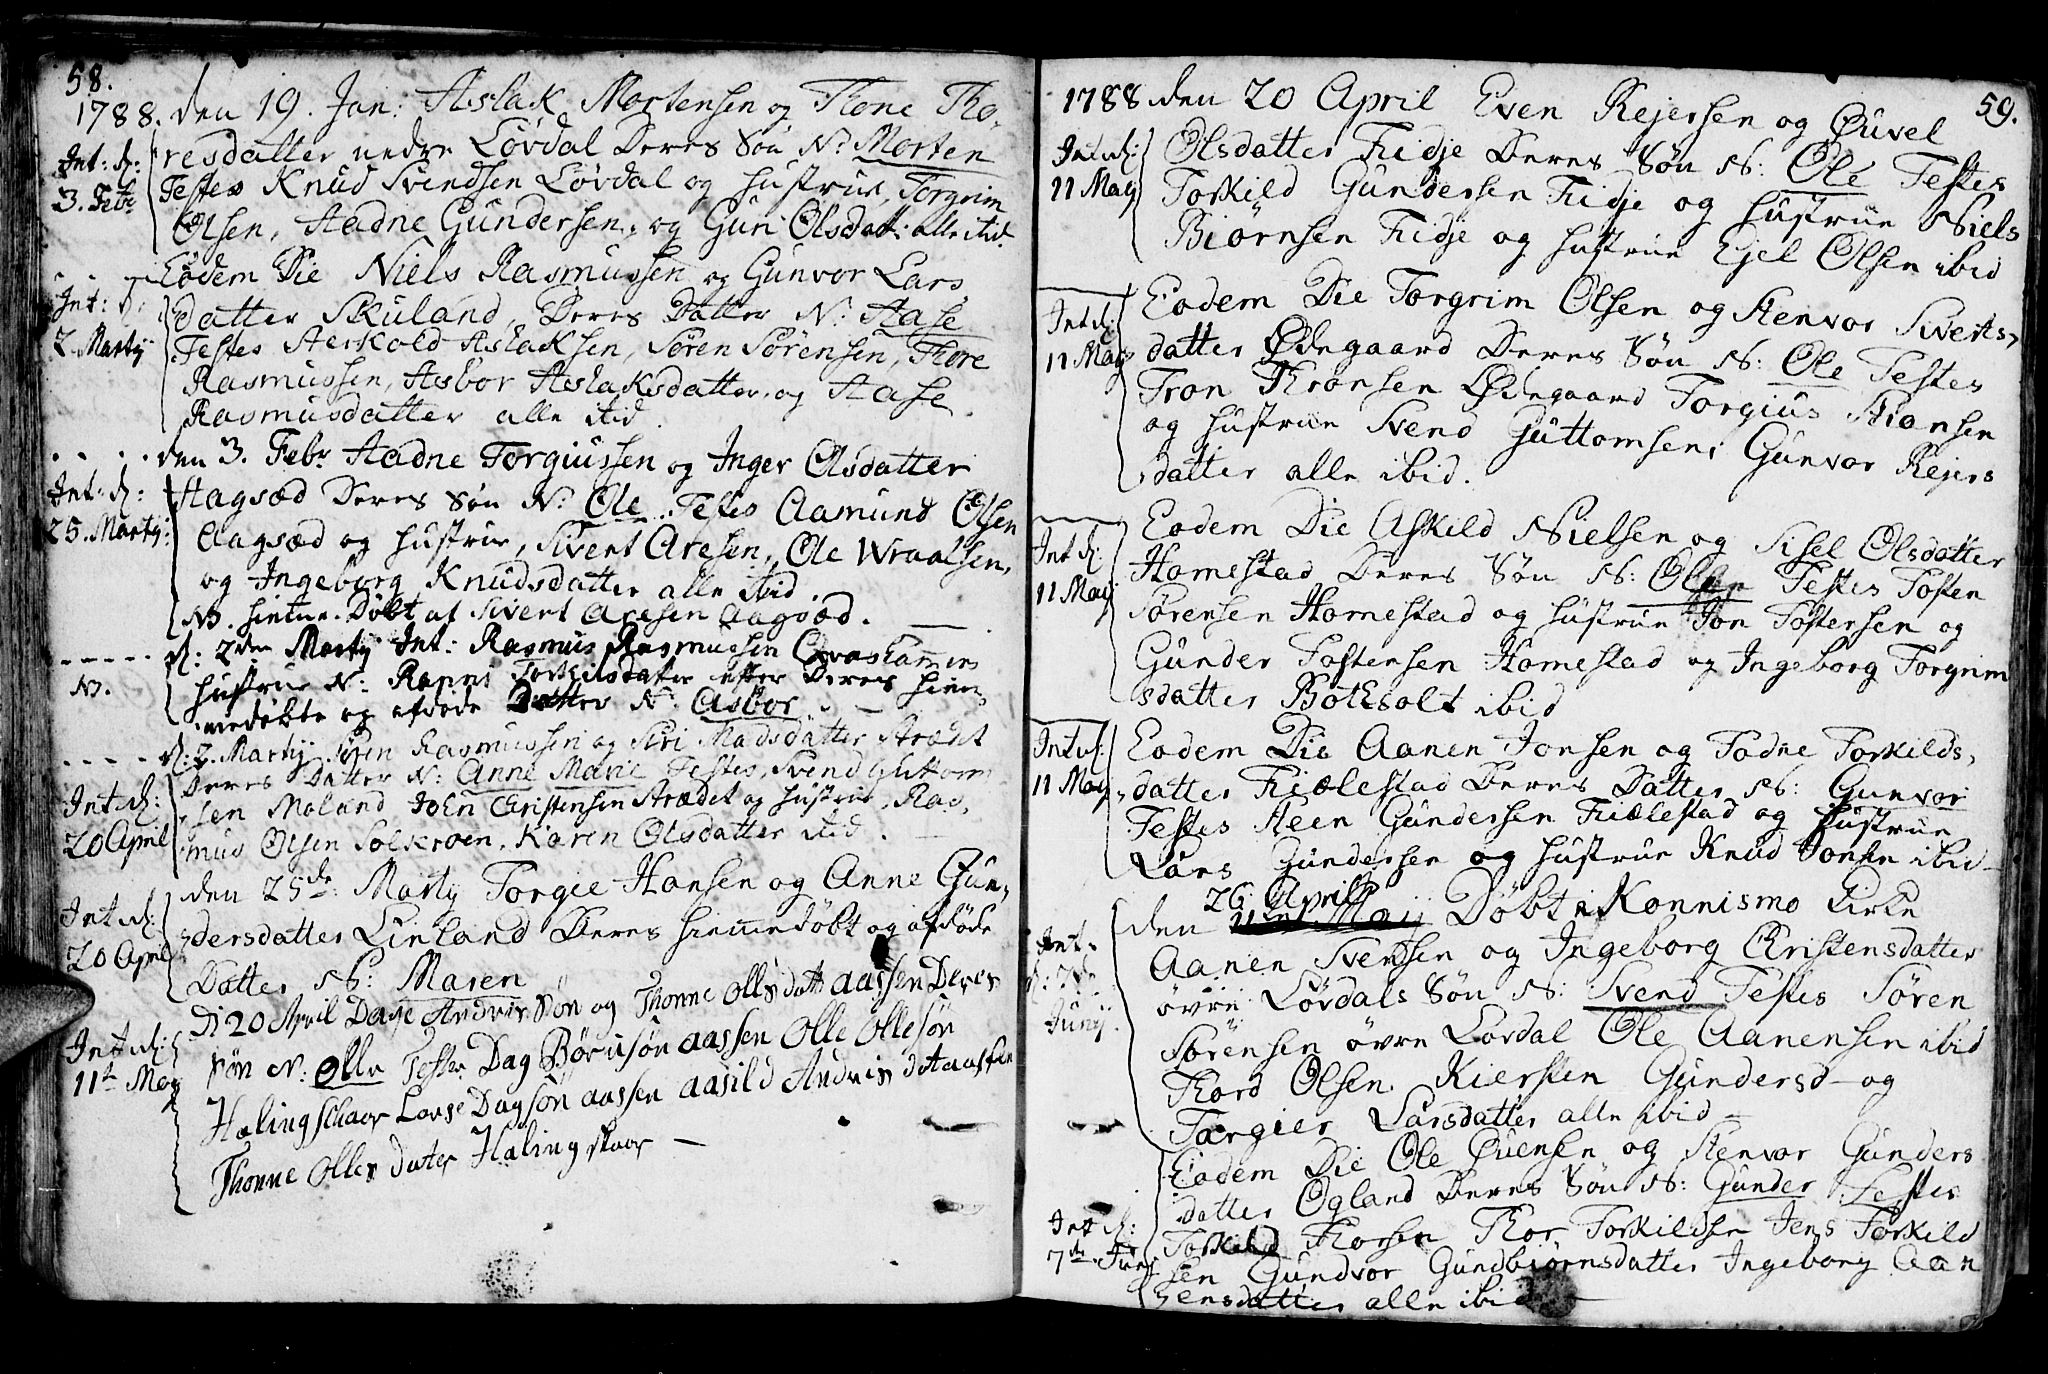 58.
1788. den 19. Jan: Aslak Mortensen og Tone Tho,
Int: d: resdatter nedre Løvdal Deres Søn N: Morten
3. Febr Testes Knud Svendsen Løvdal og Hustrue, Torgrim
Olsen, Aadne Gundersen, og Guri Olsdatt: alle ibid.
Eodem Die Niels Rasmussen og Gunvor Lars
Int: d: datter Skuland, Deres Datter N: Aase
2. Marty Testes Aerkold Aslaksen, Søren Sørensen, Thore
Rasmussen, Asbor Aslaksdatter, og Aase
Rasmusdatter alle ibid.
den 3. Febr Aadne Torgiussen og Inger Olsdatter
Int: d: Aagsæd Deres Søn N: Ole Testes Aamund Olsen
25. Marty: Aagsæd og Hustrue, Sivert Aresen, Ole Wraalsen,
og Ingeborg Knudsdatter alle ibid.
NB. hieme Døbt af Sivert Aresen Aagsæd.
d: 2den Marty Int: Rasmus Rasmussen
NB. Hustrue N: Ranni Torkilsdatter efter Deres hiem
medøbte og afdøde Datter N: Asbor
d: 2. Marty. Søren Rasmussen og Siri Madsdatter Strædet
Deres Datter N: Anne Marie Testes, Svend Guttom
Int d: sen Moland John Christensen Strædet og Hustrue, Ras,
20 April mus Olsen Solkroen, Karen Olsdatter ibid.
den 25de Marty Torgie Hansen og Anne Gun,
Int d: dersdatter Linland Deres hiemmedøbt og afdøde
20 April Datter N: Maren
D 20 April Daje Andris Søn og Thonne Olls datt aassen Deres
Int d: Søn N: Olle Testes Dag Børusøn aassen Olle Ollesøn
11te May Halingschaar Lavse Dagsøn aassen aasild Andris d Aassen
Thonne Olles dater Halingskaar
59.
1788 den 20 April Even Rejersen og Øuvel
Int d: Olsdatter Fidje Deres Søn N: Ole Testes
11 May Torkild Gundersen Fidje og Hustrue Niels
Biørnsen Fidje og Hustrue Ejel Olsen ibid
Eodem Die Torgrim Olsen og Stenvor Siverts,
Int d: datter Ødegaard Deres Søn N: Ole Testes
11 May Tron Thronsen Ødegaard Torgius Aronsen
og Hustrue Svend Guttomsen, Gunvor Rejers
datter alle ibid.
Eodem Die Askild Nielsen og Sisel Olsdatter
Int d: Homestad Deres Søn N: Testes Tosten
11 May Sørensen Homestad og Hustrue Jon Tostersen og
Gunder Tostensen Homestad og Ingeborg Torgrim
sdatter ibid
Eodem Die Aanen Jonsen og Todne Torkilds,
Int d: datter Fiælestad Deres Datter N: Gunvor
11 May Testes Steen Gundersen Fiælestad og Hustrue
Lars Gundersen og Hustrue Knud Jonsen ibid
26 April
den 11te May Døbt i Konnismo Kirke
Int. Aanen Svensen og Ingeborg Christensdatter
d: 7de øvre Løvdals Søn N: Svend Testes Søren
Junij. Sørensen øvre Løvdal Ole Aanensen ibid
Thord Olsen. Kiersten Gundersd og
Tærgier Larsdatter alle ibid
Eodem Die Ole Øuensen og Stenvor Gunders
datter Ogland Deres Søn N: Gunder Testes
Int d: Torkild Thorsen Thor Torkildsen Jens Torkild
7de Juni sen Gundvor Gundbiørnsdatter Ingeborg Aan
ensdatter alle ibid